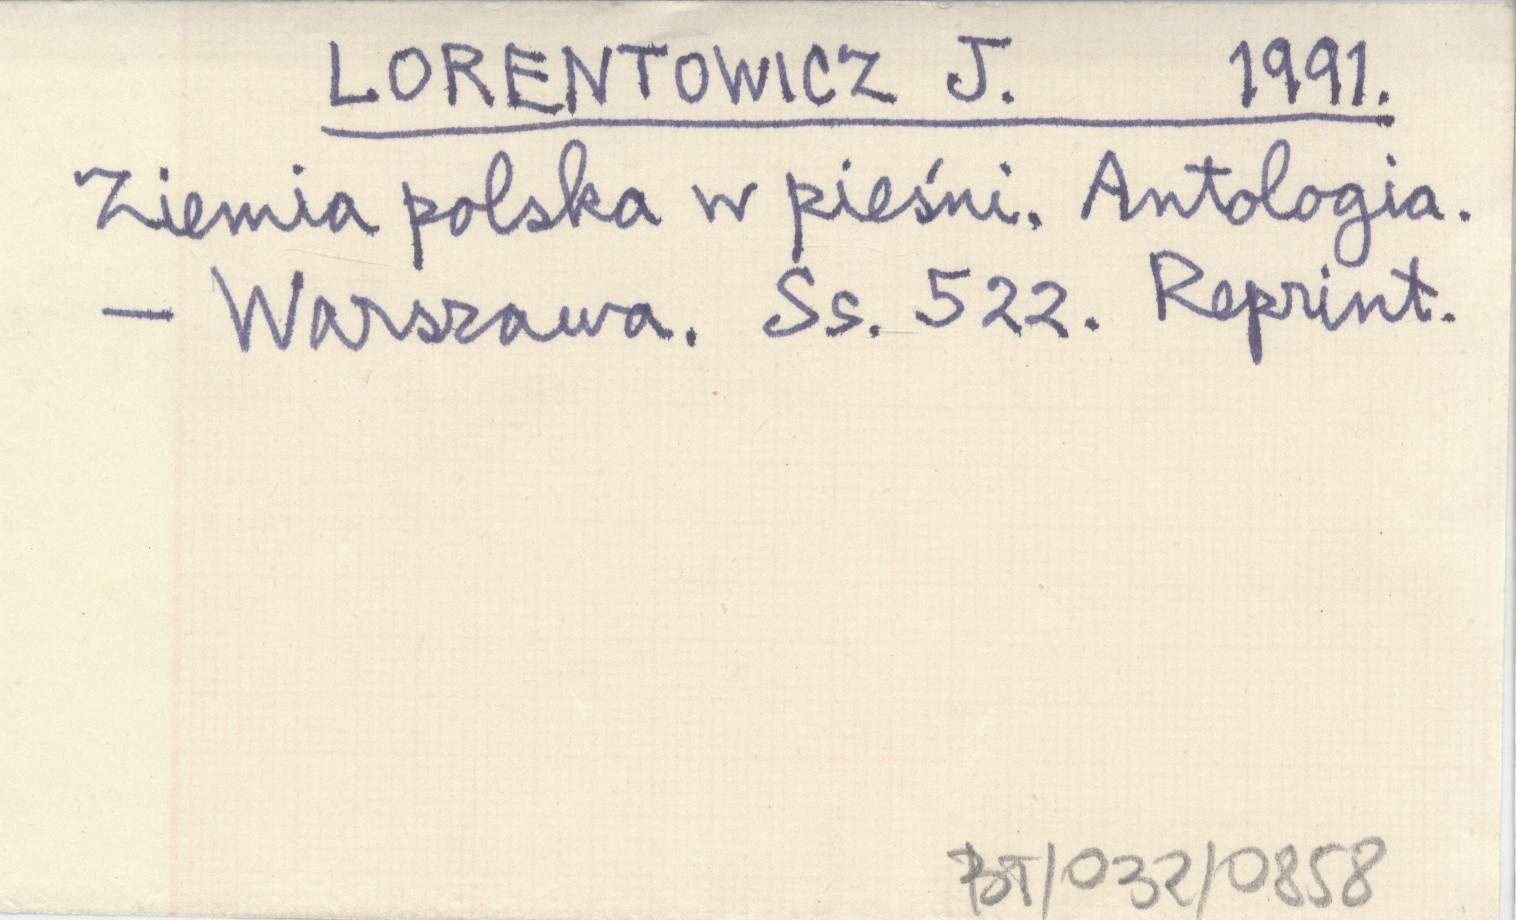 LORENTOWICZ J. 1991.
Ziemia polska w pieśni. Antologia.
— Warszawa. Ss. 522. Reprint.
BT/032/0858